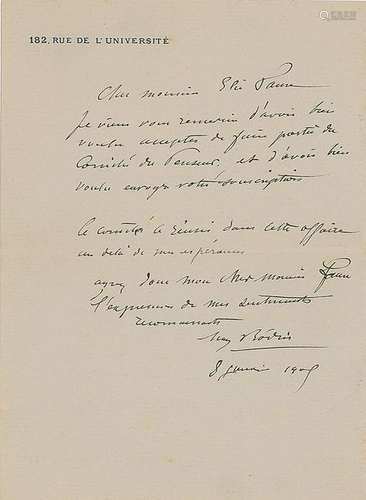 182, RUE DE L'UNIVERSITÉ
Cher monsieur Elie Faure
Je viens vous remercier d'avoir bien
voulu accepter de faire partie du
Comité du Penseur, et d'avoir bien
voulu envoyer votre souscription
Le comité a réussi dans cette affaire
au delà de mes espérances
ayez donc mon cher monsieur Faure
l'expression de mes sentiments
reconnaissants
Aug Rodin
8 janvier 1905